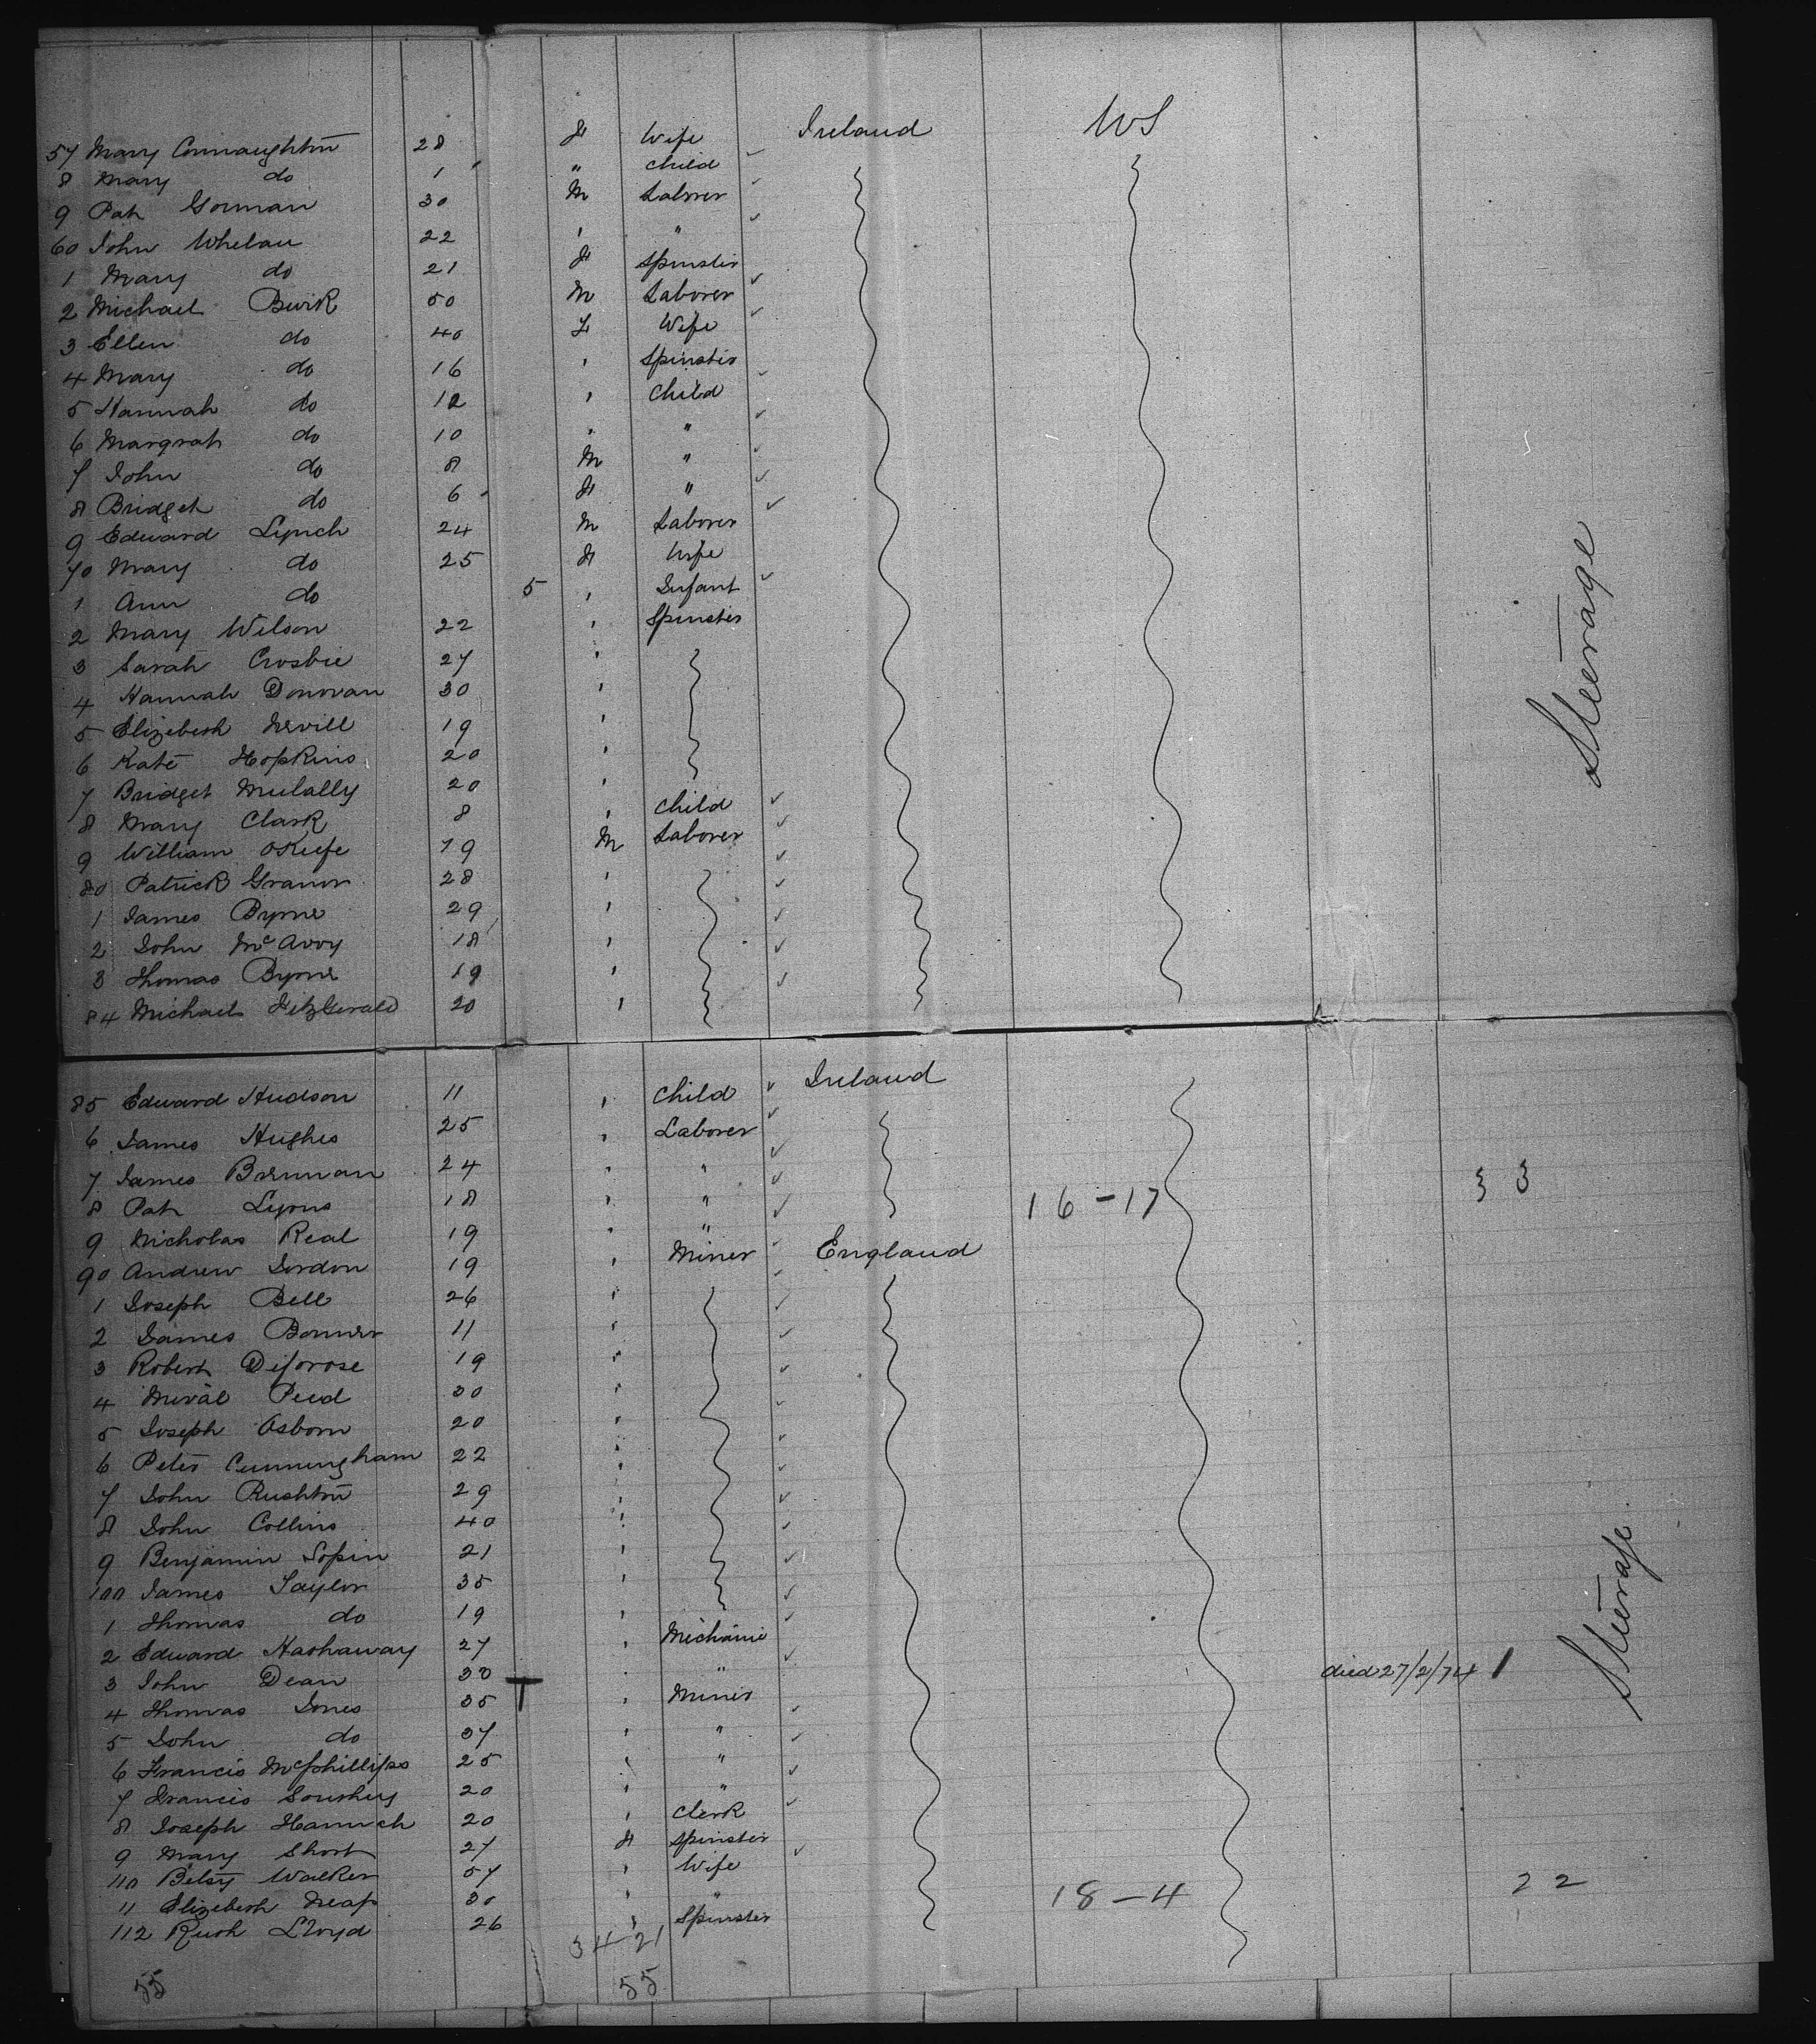 57 Mary Connaughton 28 F Wife Ireland US
8 Mary do 1 " Child
9 Pat Gorman 30 M Laborer
60 John Whelan 22 ' "
1 Mary do 21 F Spinster
2 Michael Burk 50 M Laborer
3 Ellen do 40 F Wife
4 Mary do 16 ' Spinster
5 Hannah do 12 ' Child
6 Margrat do 10 ' "
7 John do 8 M "
8 Bridget do 6 F "
9 Edward Lynch 24 M Laborer
70 Mary do 25 F Wife
1 Ann do 5 ' Infant
2 Mary Wilson 22 ' Spinster
3 Sarah Crosbie 27 '
4 Hannah Donovan 30 '
5 Elizebeth Nevill 19 '
6 Kate Hopkins 20 '
7 Bridget Mulally 20 '
8 Mary Clark 8 ' Child
9 William OKeefe 19 M Laborer
80 Patrick 28 '
1 James Byrne 29 '
2 John McAvoy 18 '
3 Thomas Byrne 19 '
84 Michael FitzGerald 20 '
Steerage
85 Edward Hudson 11 ' Child Ireland
6 James Hughes 25 ' Laborer
7 James Brennan 24 ' "
8 Pat Lyons 18 ' " 16-17 33
9 Nicholas Real 19 " "
90 Andrew Gordon 19 ' Miner England
1 Joseph Bell 26 '
2 James Bonner 11 '
3 Robert 19 '
4 30 '
5 Joseph Osborn 20 '
6 Peter Cunningham 22 '
7 John Rushton 29 '
8 John Collins 40 '
9 Benjamin 21 '
100 James Taylor 35 '
1 Thomas do 19 '
2 Edward Hathaway 27 ' Mechanic
3 John Dean 30 ' " died 27/2/74 1
4 Thomas Jones 35 ' Miner
5 John do 37 ' "
6 Francis McPhillips 25 ' "
7 Francis 20 ' "
8 Joseph 20 ' Clerk
9 Mary Short 27 F Spinster
110 Betsy Walker 57 ' Wife
11 Elizebeth 30 ' " 18-4 22
112 Ruth Lloyd 26 ' Spinster
Steerage
34 21
55 55